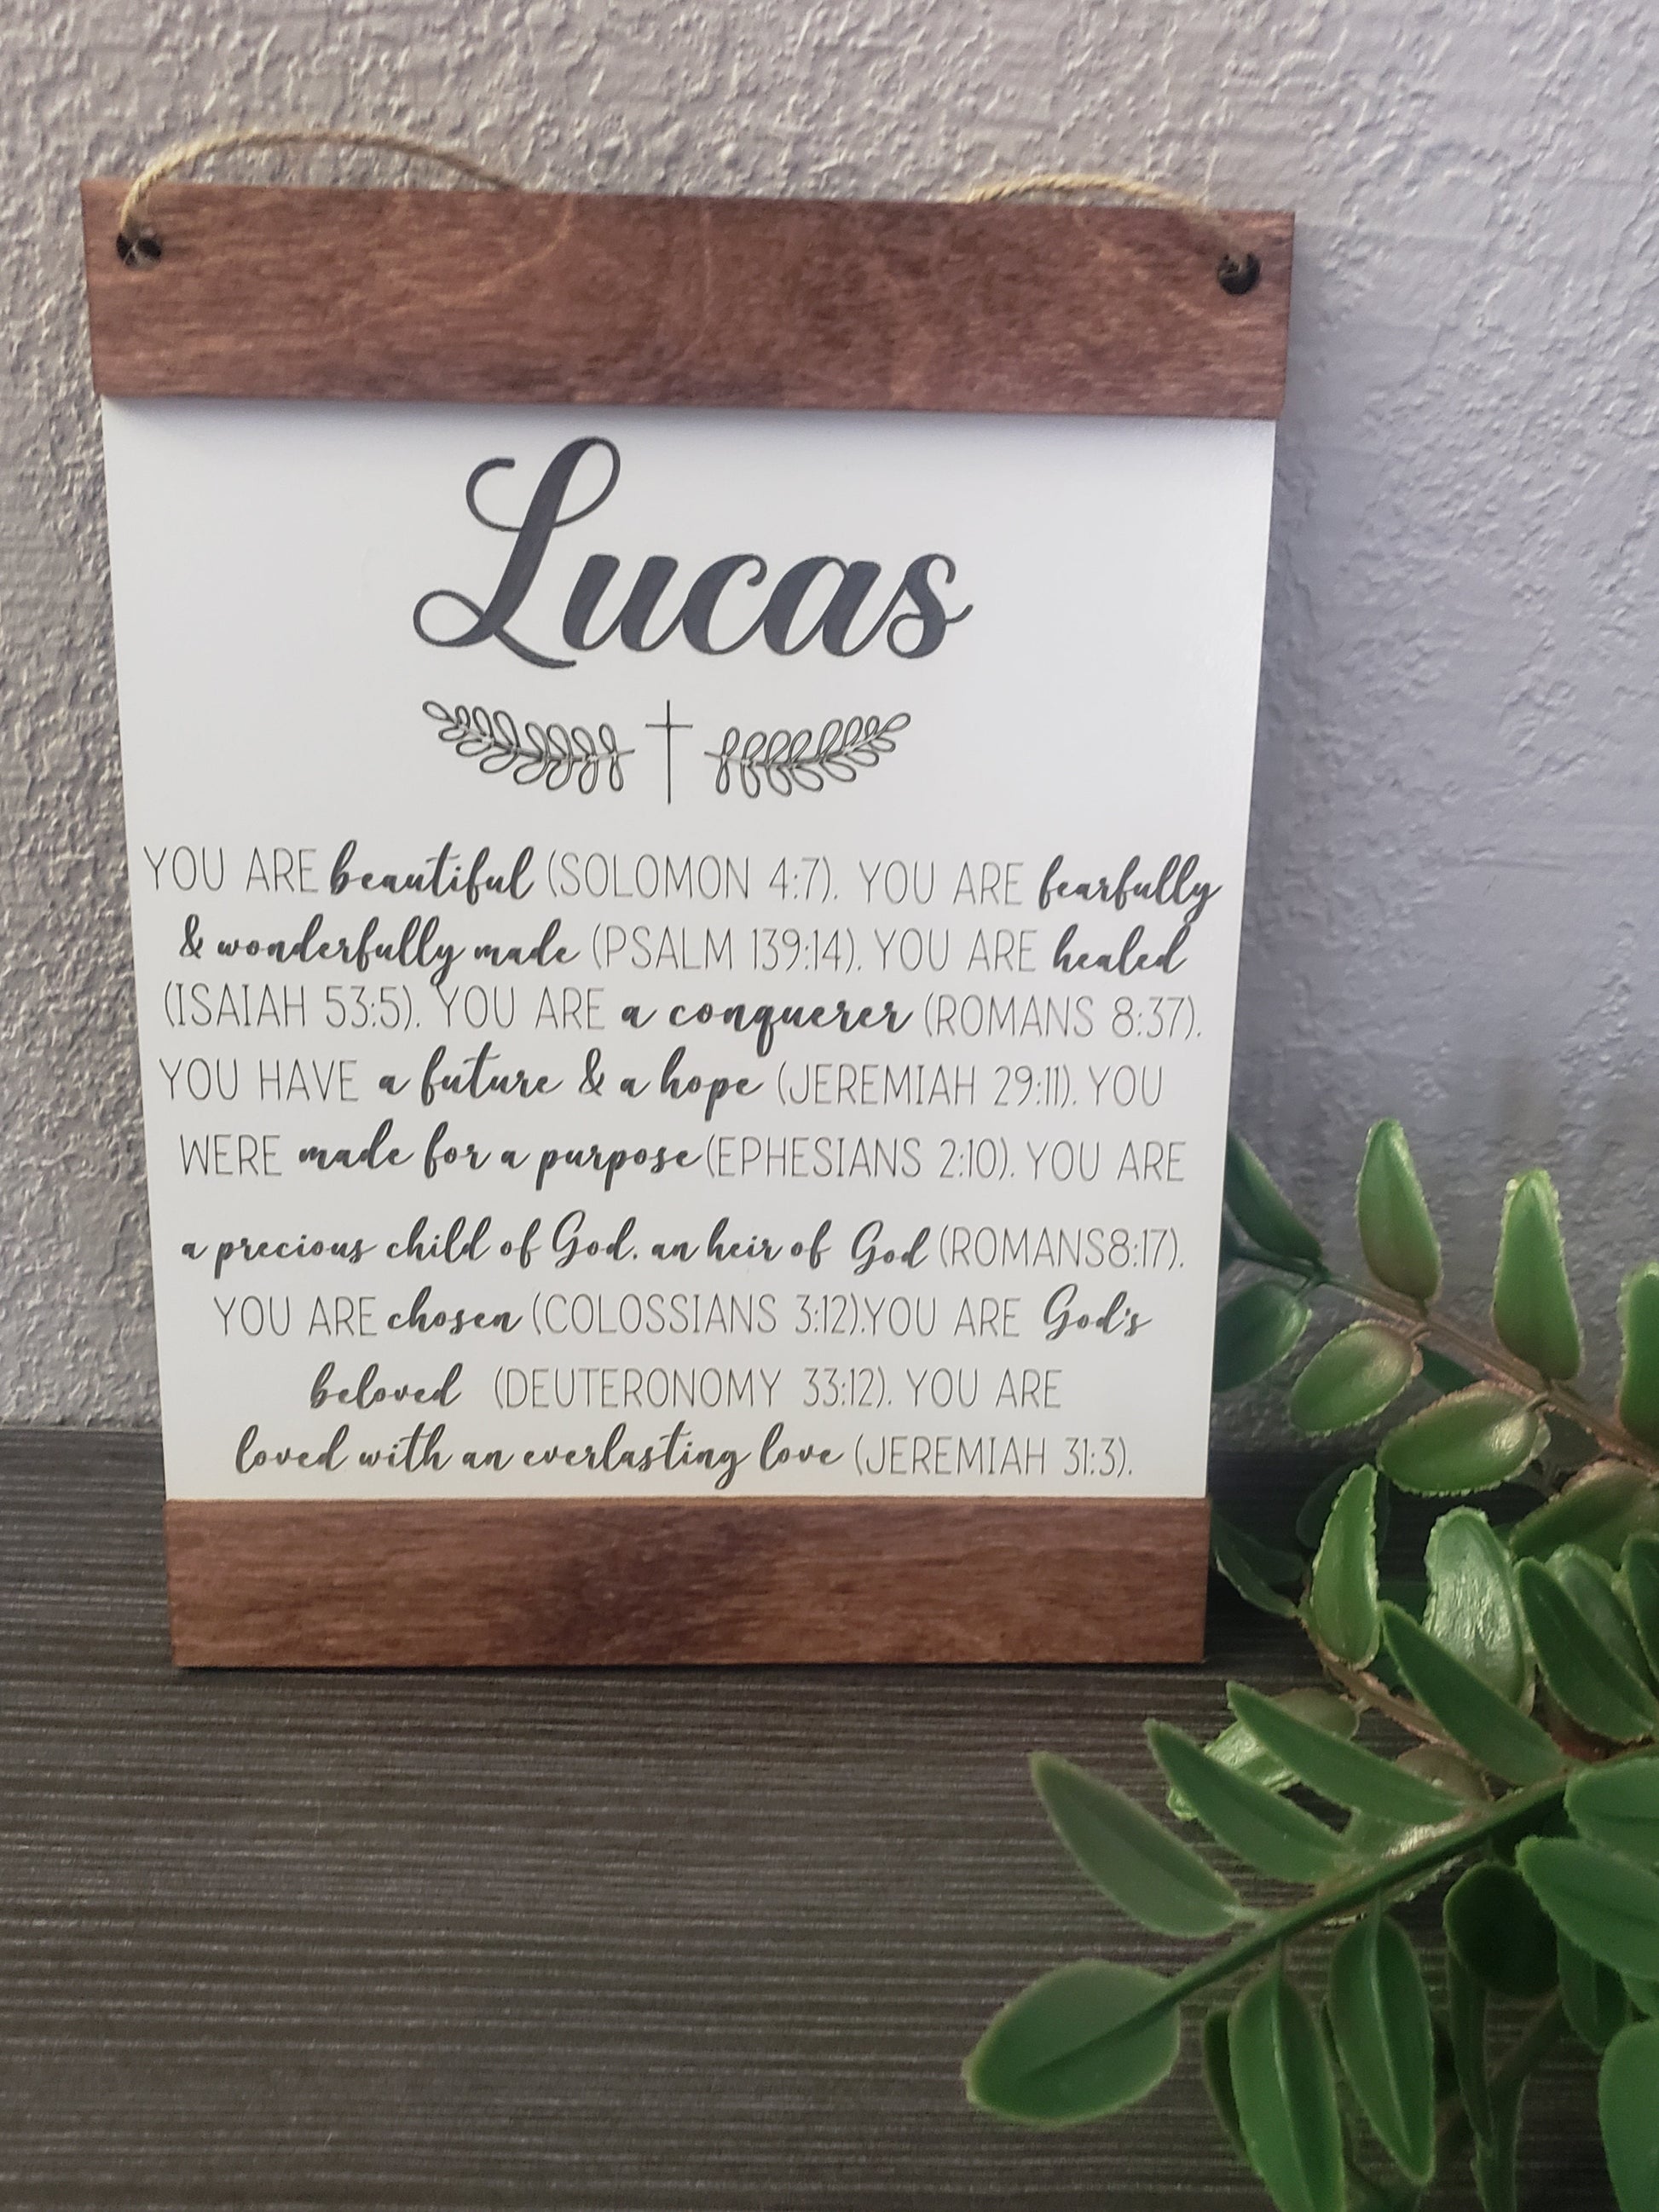 Lucas
YOU ARE beautiful (SOLOMON 4:7). YOU ARE fearfully
& wonderfully made (PSALM 139:14). YOU ARE healed
(ISAIAH 53:5). YOU ARE a conquerer (ROMANS 8:37).
YOU HAVE a future & a hope (JEREMIAH 29:11). YOU
WERE made for a purpose (EPHESIANS 2:10). YOU ARE
a precious child of God, an heir of God (ROMANS8:17).
YOU ARE chosen (COLOSSIANS 3:12).YOU ARE God's
beloved (DEUTERONOMY 33:12). YOU ARE
loved with an everlasting love (JEREMIAH 31:3).